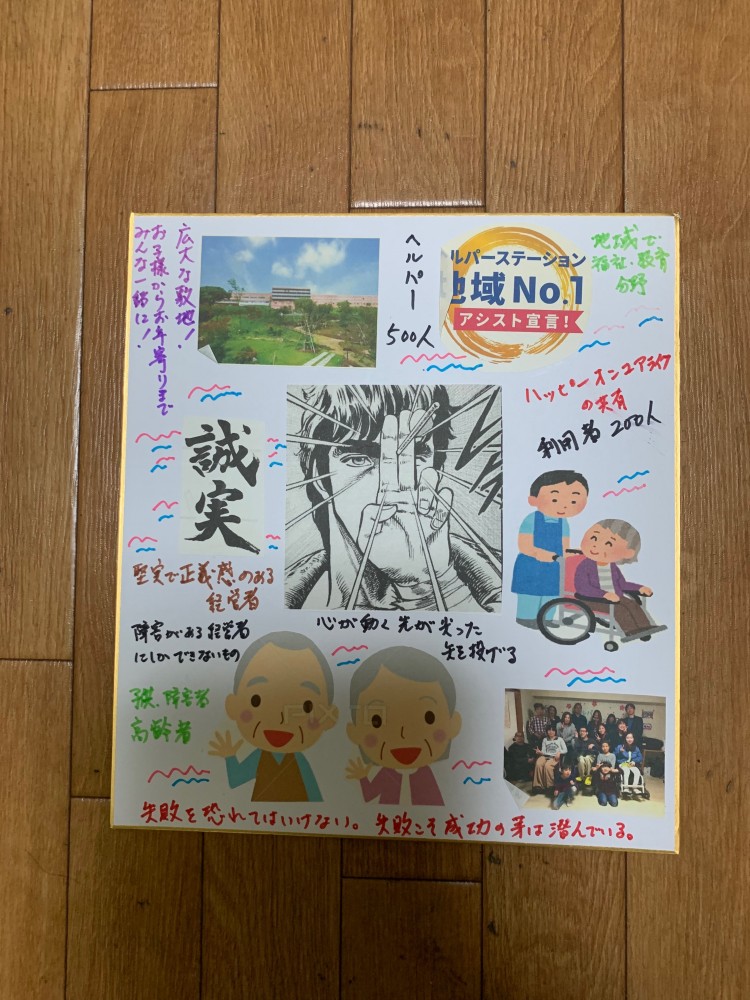 広大な敷地!
お子様からお年寄りまで
みんな一緒に!
ヘルパー
500人
ルパーステーション
地域 No.1
アシスト宣言!
地域で
福祉・教育
分野
ハッピーオンユアライフ
の共有
利用者 200人
誠実
堅実で正義感のある
経営者
障害がある経営者
にしかできないもの
心が動く先が尖った
矢を投げる
子供、障害者
高齢者
失敗を恐れてはいけない。失敗こそ成功の芽は潜んでいる。